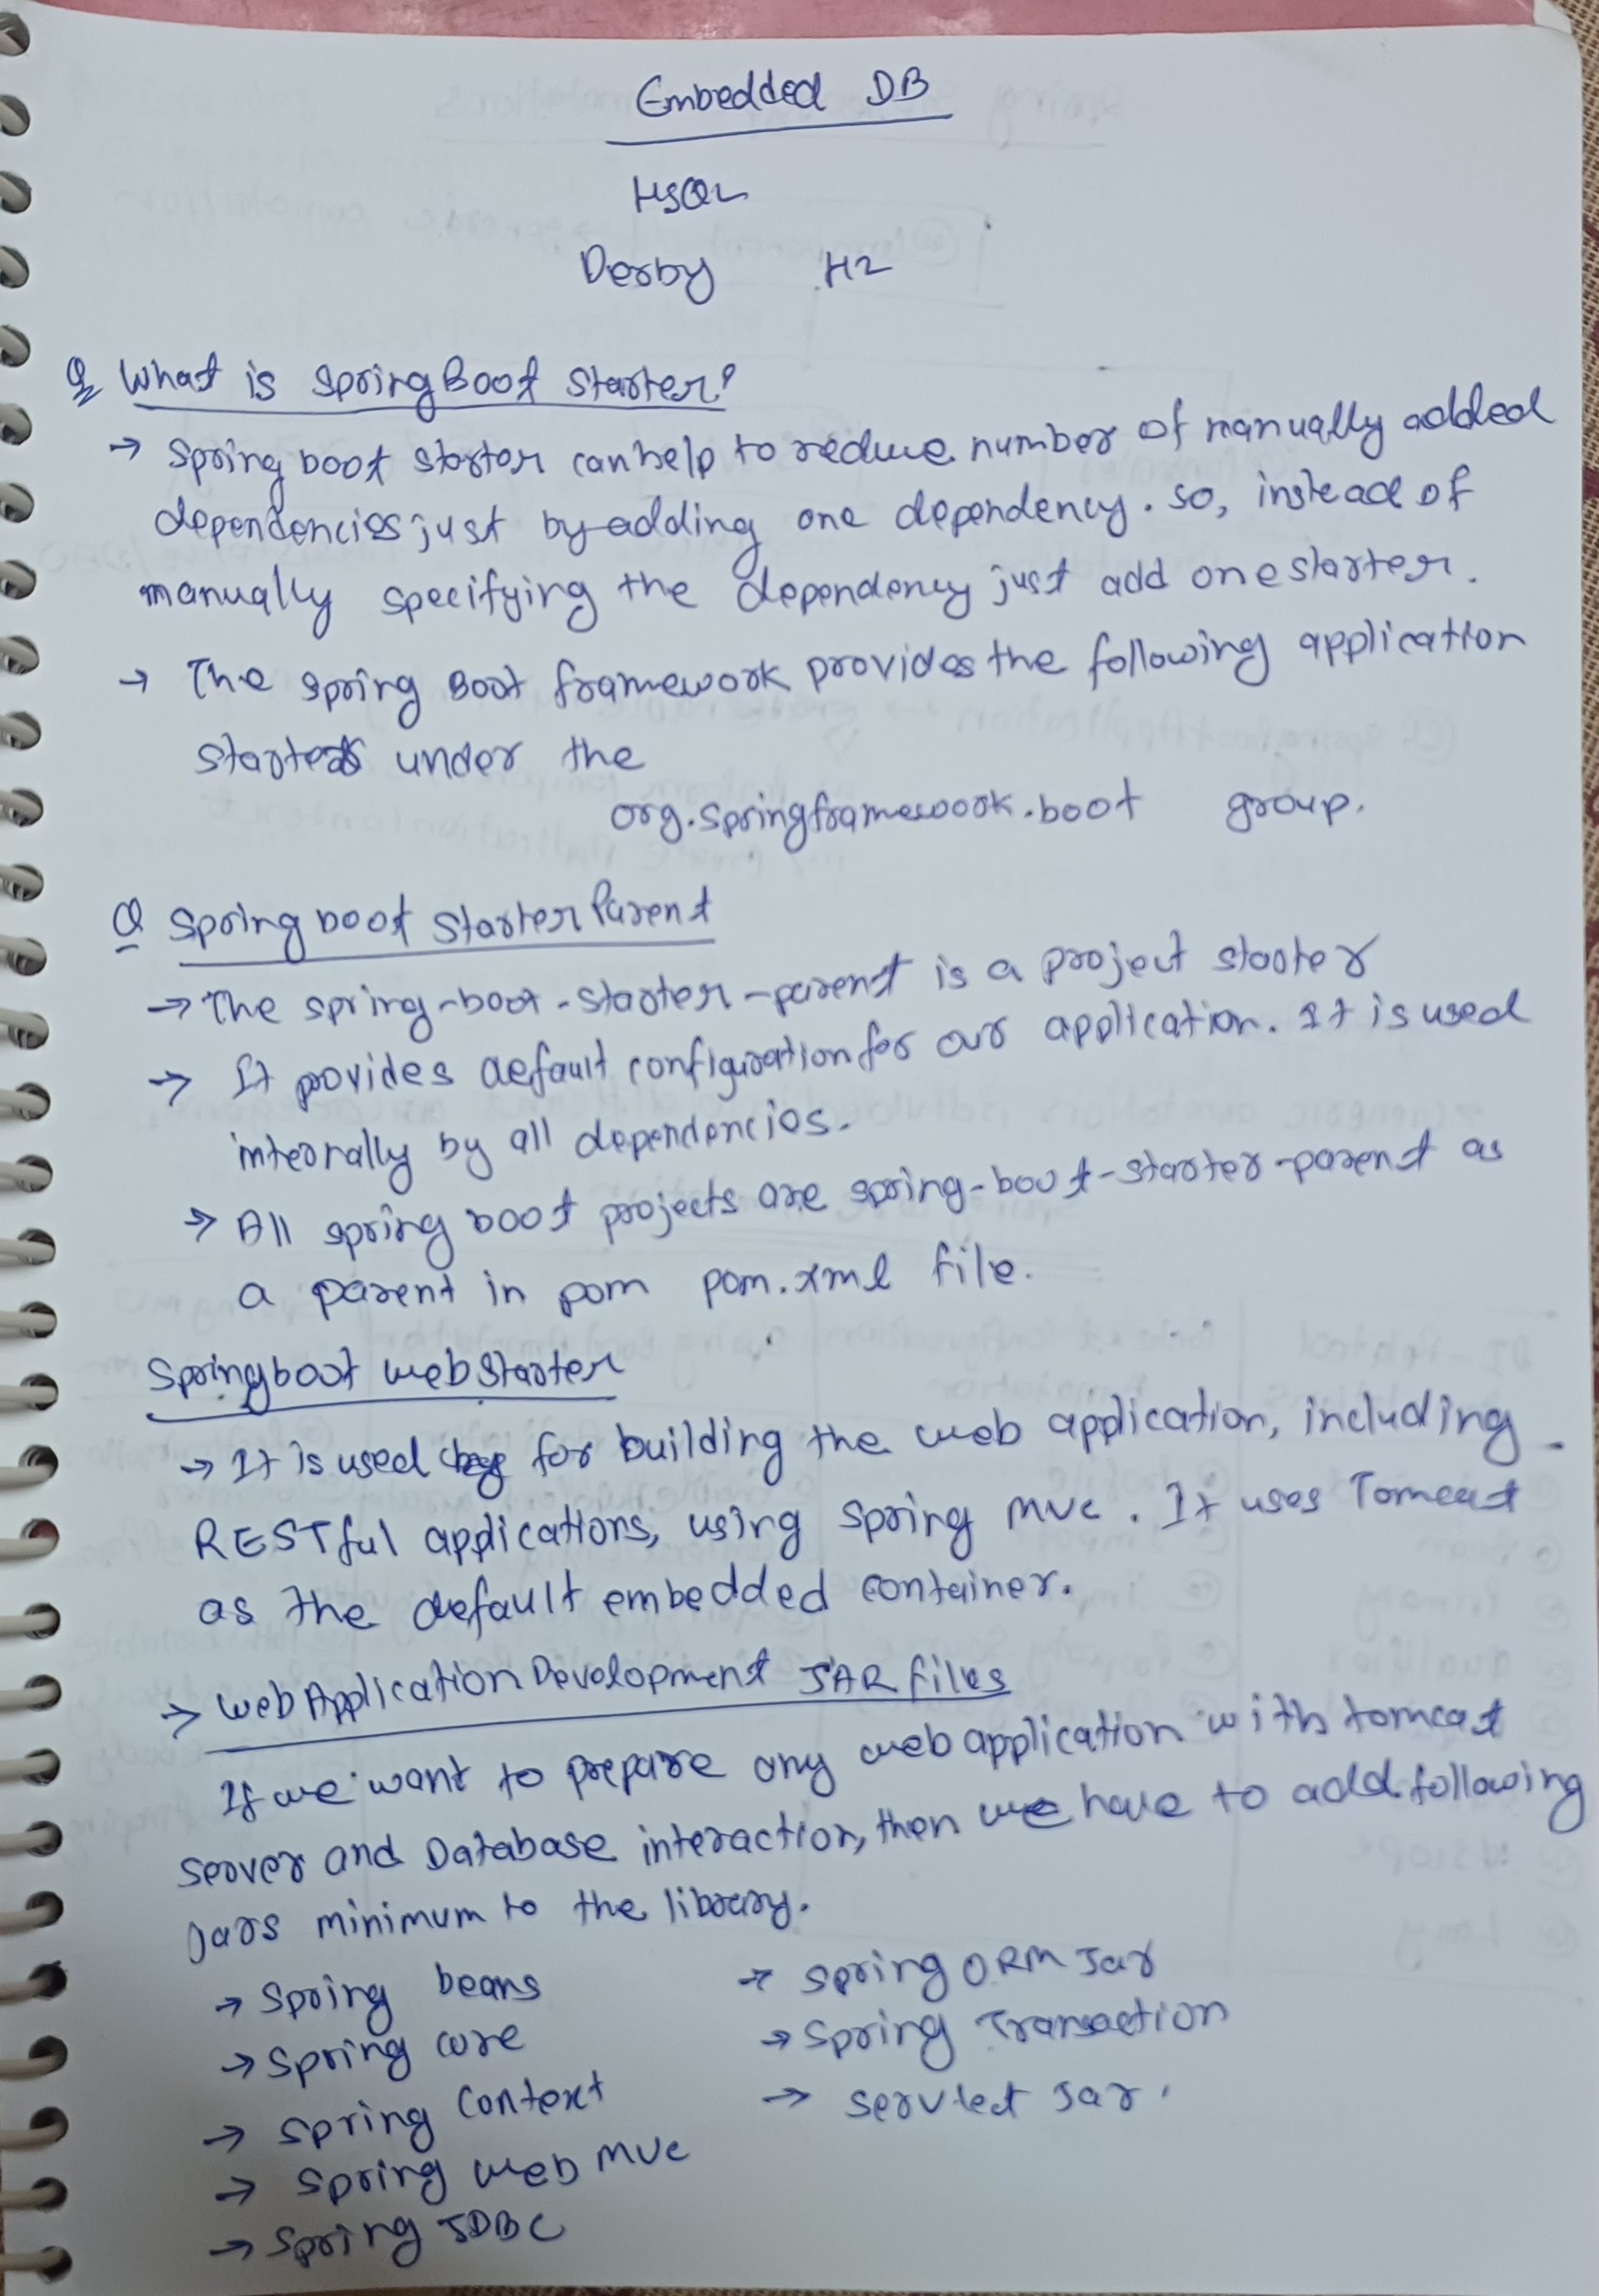 Embedded DB
HSQL
Derby H2
Q What is SpringBoot Starter?
→ Spring boot starter can help to reduce number of manually added
dependencies just by adding one dependency. so, instead of
manually specifying the dependency just add one starter.
→ The Spring Boot framework provides the following application
starters under the
org.springframewoork.boot group.
Q Spring boot Starter Parent
→ The spring-boot-starter-parent is a project starter
→ It provides default configuration for our application. It is used
internally by all dependencies.
→ All spring boot projects are spring-boot-starter-parent as
a parent in pom pom.xml file.
Spring boot web Starter
→ It is used for building the web application, including
RESTful applications, using Spring MVC. It uses Tomcat
as the default embedded container.
→ Web Application Development JAR files
If we want to prepare any web application with tomcat
server and Database interaction, then we have to add following
Jars minimum to the library.
→ Spring beans → Spring ORM Jar
→ Spring core → Spring Transaction
→ Spring Context → Servlet Jar.
→ Spring web MVC
→ Spring JDBC